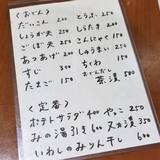 ＜おでん＞
だいこん 200 とうふ 250
しょうが天 250 しらたき 150
ごぼ天 250 こんにゃく 150
あつあげ 200 しゅうまい 250
すじ 300 ちくわ 150
たまご 150 おでんだし茶漬 500
＜定番＞
ポテトサラダ 400 やっこ 250
みの湯引き 600 又カ漬 350
いわしのみりん干し 600